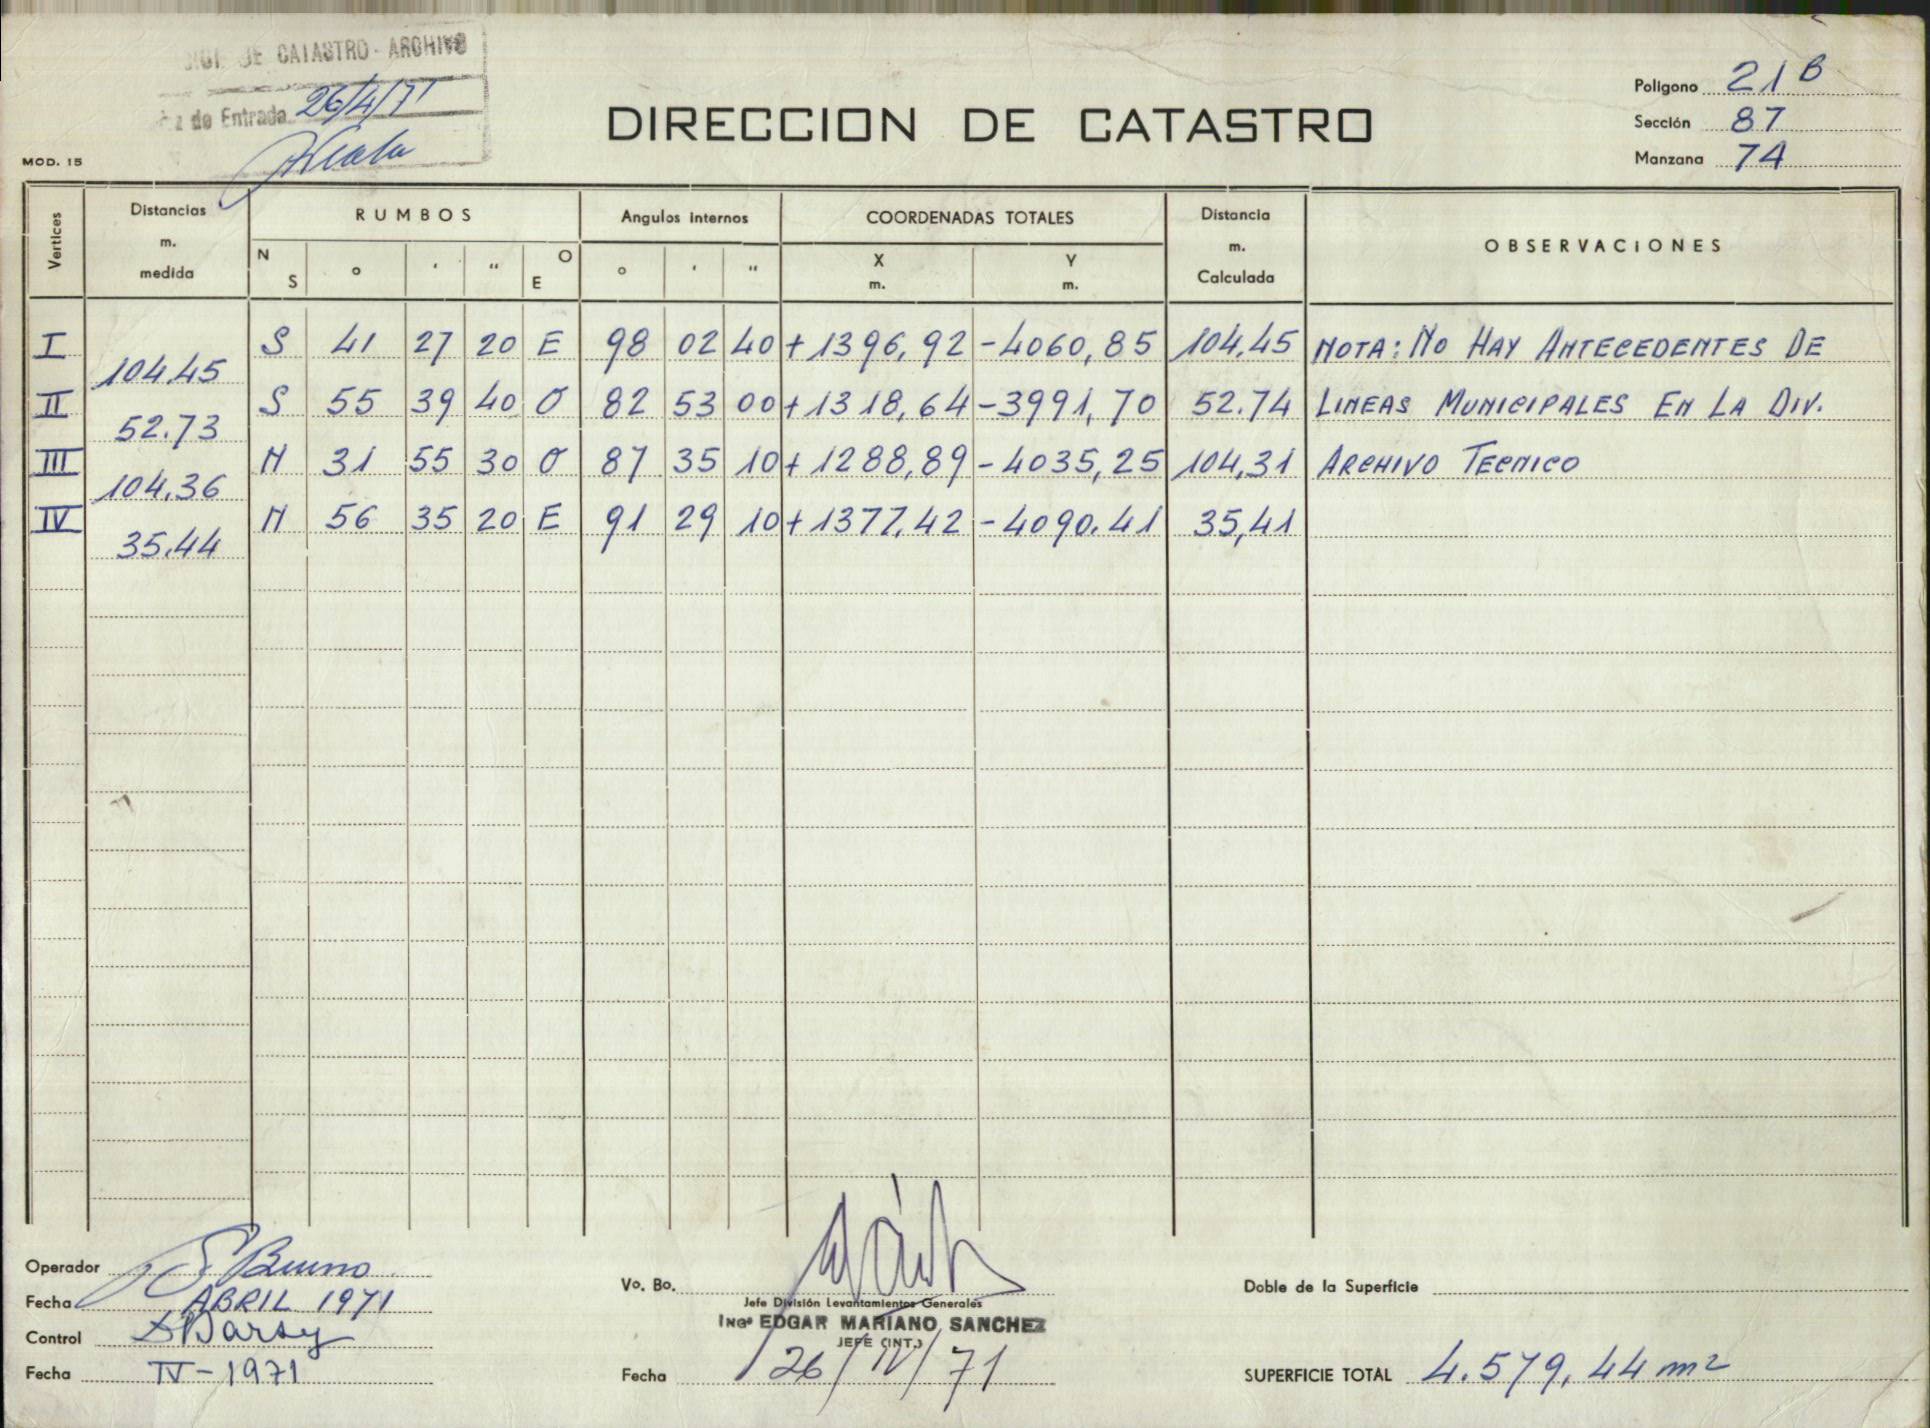 DE CATASTRO - ARCHIVO
de Entrada 26/4/71
MOD. 15
DIRECCION DE CATASTRO
Poligono 21 B
Sección 87
Manzana 74
Vertices Distancias m. medida RUMBOS N S ° ' " O E Angulos internos ° ' " COORDENADAS TOTALES X m. Y m. Distancia m. Calculada OBSERVACIONES
I S 41 27 20 E 98 02 40 +1396,92 -4060,85 104,45 NOTA: NO HAY ANTECEDENTES DE
104.45
II S 55 39 40 O 82 53 00 +1318,64 -3991,70 52.74 LINEAS MUNICIPALES EN LA DIV.
52.73
III N 31 55 30 O 87 35 10 +1288,89 -4035,25 104,31 ARCHIVO TECNICO
104.36
IV N 56 35 20 E 91 29 10 +1377,42 -4090.41 35,41
35.44
Operador Bruno
Fecha ABRIL 1971
Control
Fecha IV-1971
Vo. Bo.
Jefe División Levantamientos Generales
ING° EDGAR MARIANO SANCHEZ
JEFE (INT.)
Fecha 26/IV/71
Doble de la Superficie
SUPERFICIE TOTAL 4.579,44 m2